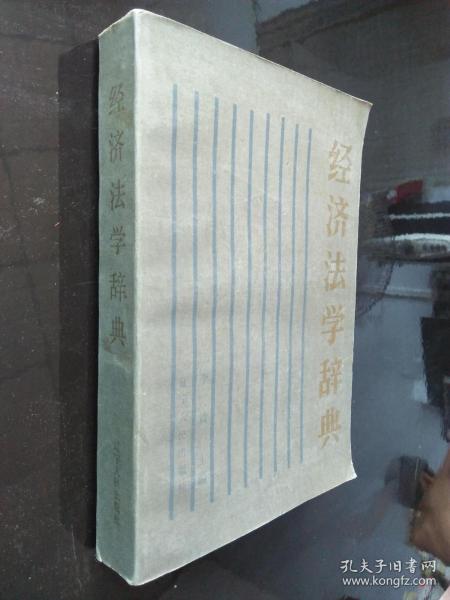 经济法学辞典
经济法学辞典
辽宁人民出版社
孔夫子旧书网
www.kongfz.com